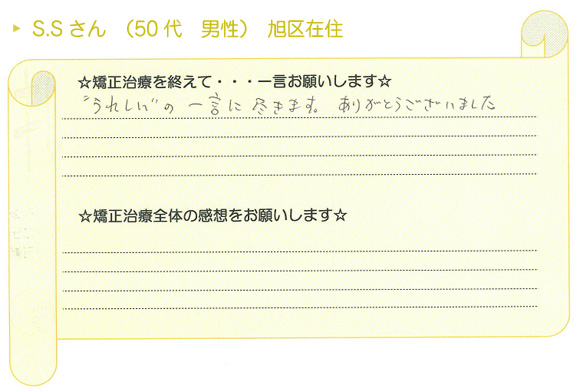 ▶ S.Sさん （50代　男性）　旭区在住
☆矯正治療を終えて・・・一言お願いします☆
"うれしい"の一言に尽きます。ありがとうございました
☆矯正治療全体の感想をお願いします☆